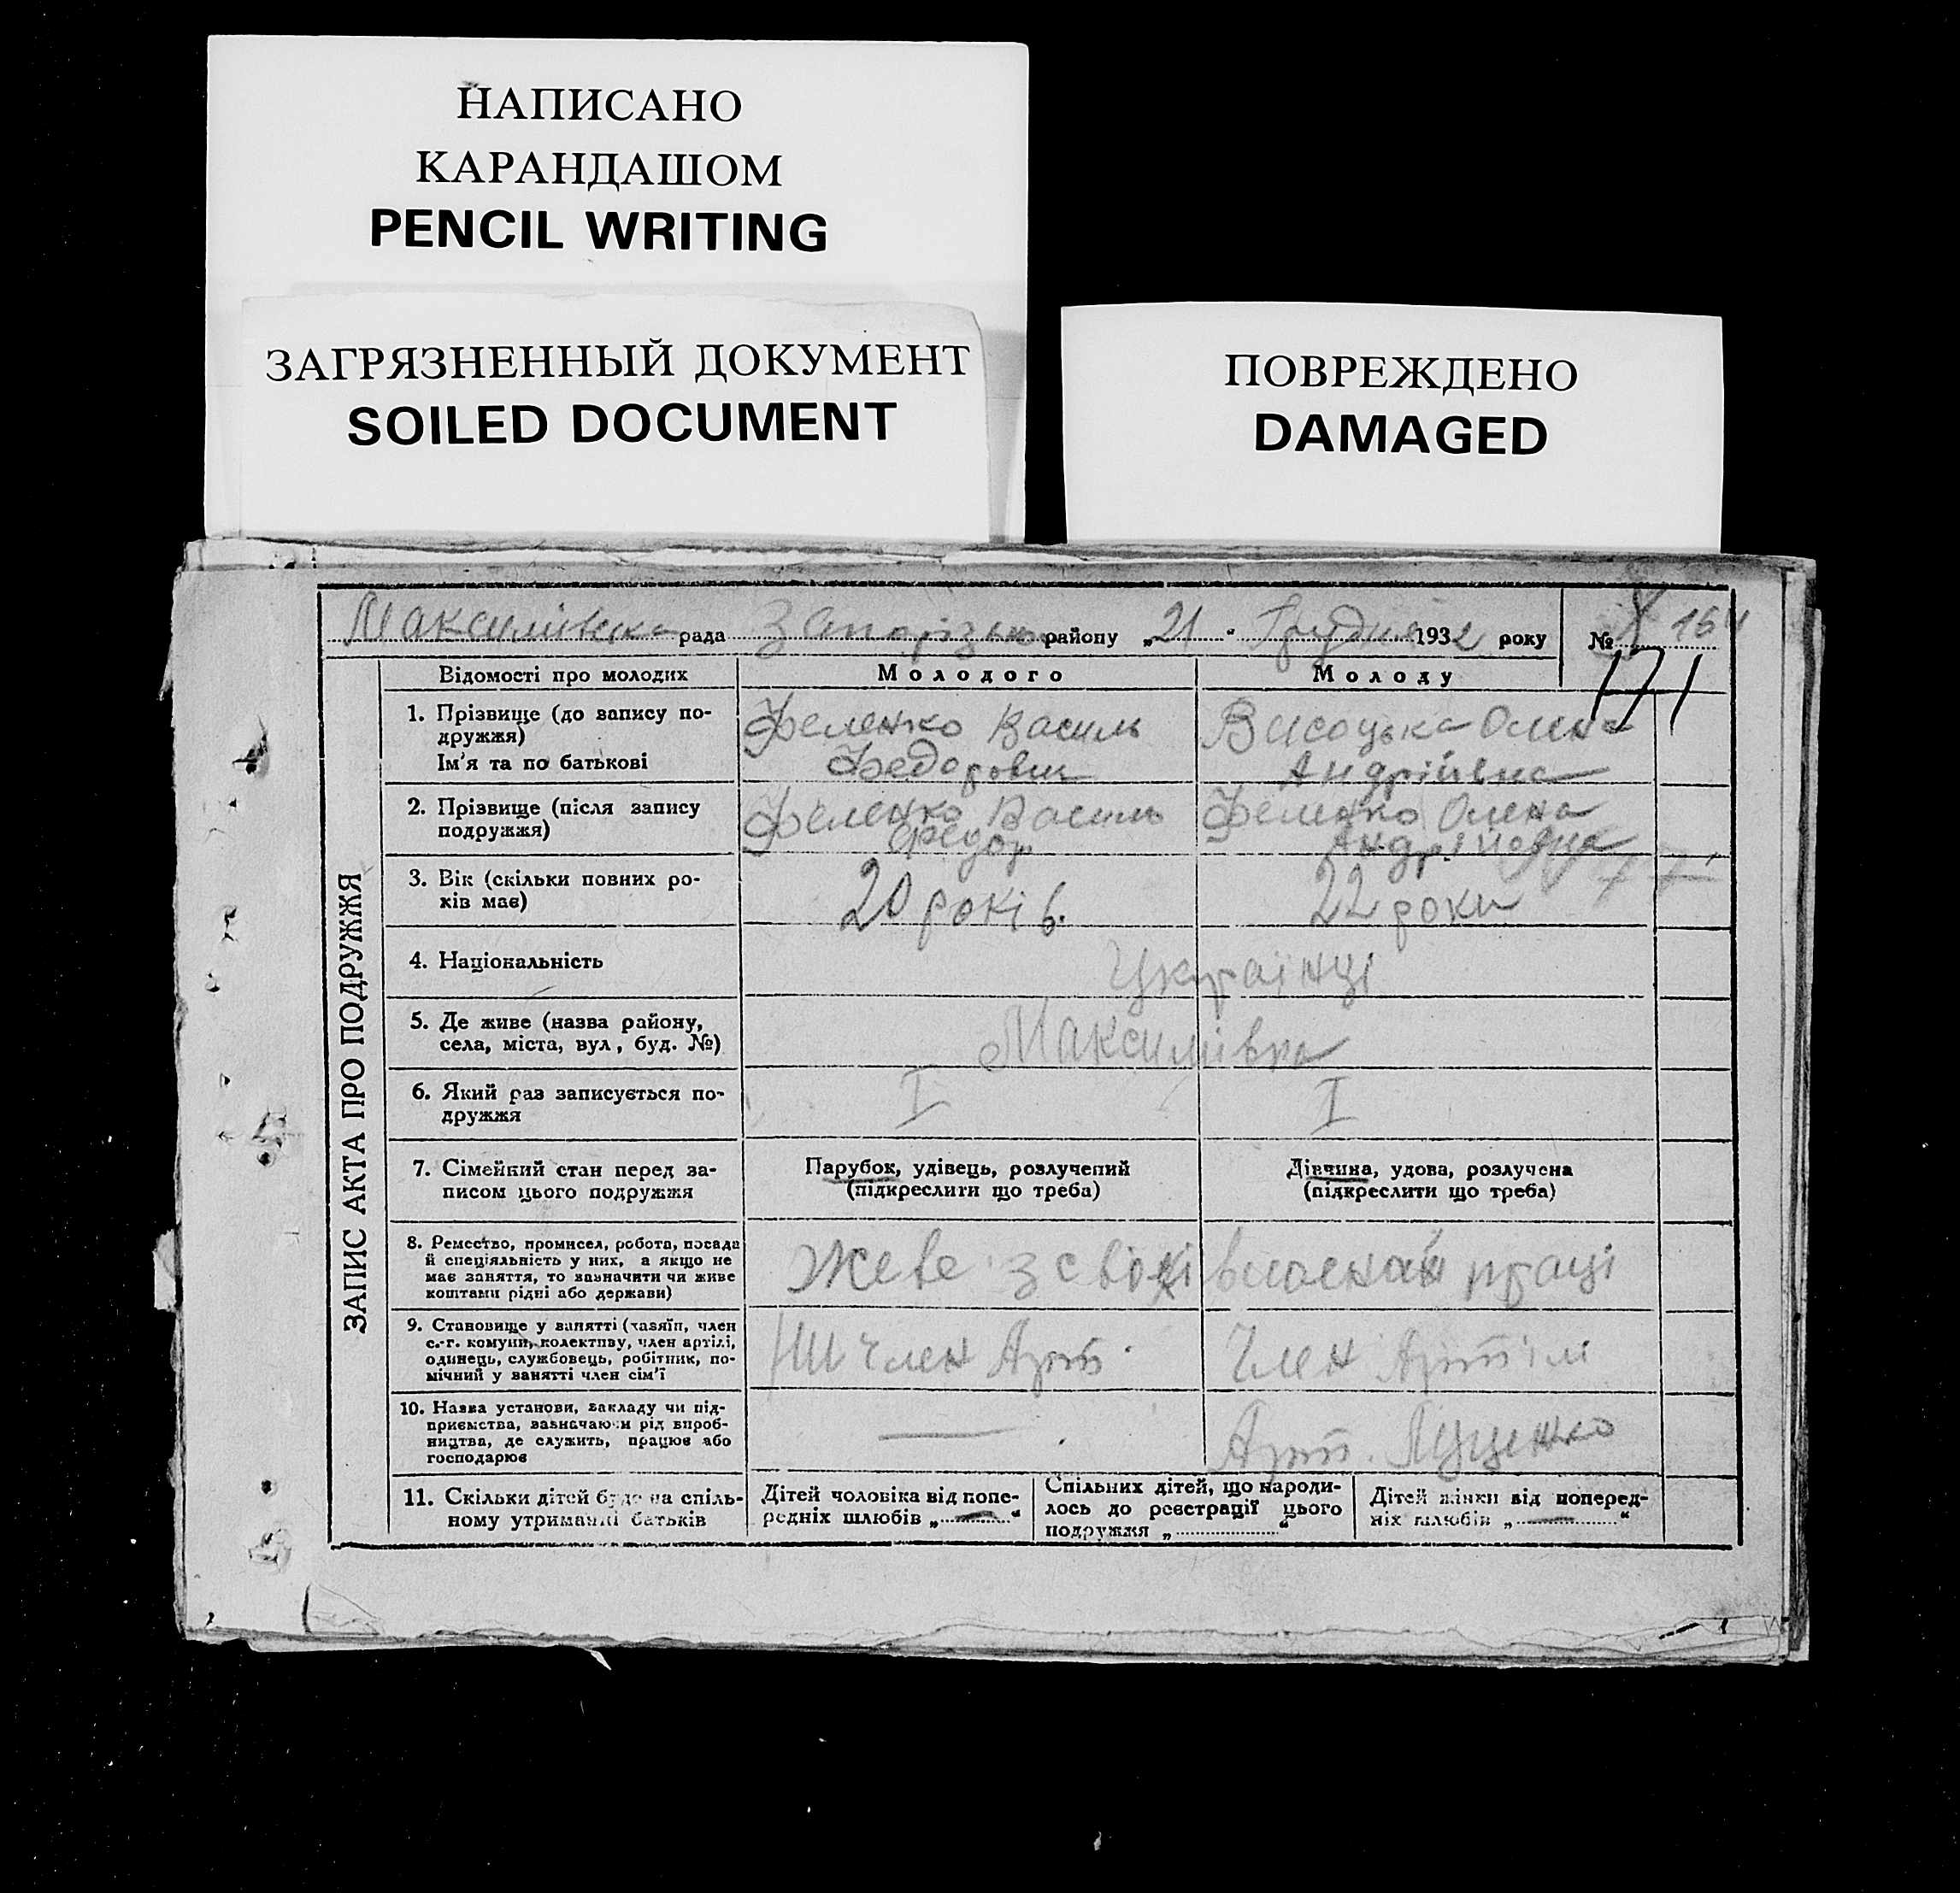 НАПИСАНО
КАРАНДАШОМ
PENCIL WRITING
ЗАГРЯЗНЕННЫЙ ДОКУМЕНТ
SOILED DOCUMENT
ПОВРЕЖДЕНО
DAMAGED
Максимівська рада Запорізького району „21" Грудня 1932 року № 164
171
Відомості про молодих
Молодого
Молоду
ЗАПИС АКТА ПРО ПОДРУЖЖЯ
1. Прізвище (до запису по-
дружжя)
Ім'я та по батькові
Феленко Василь
Федорович
Висоцька Олена
Андріївна
2. Прізвище (після запису
подружжя)
Феленко Василь
Федор
Феленко Олена
Андрійовна
3. Вік (скільки повних ро-
ків має)
20 років.
22 роки
4. Національність
Українці
5. Де живе (назва району,
села, міста, вул, буд. №)
Максимівка
6. Який раз записується по-
дружжя
I
I
7. Сімейний стан перед за-
писом цього подружжя
Парубок, удівець, розлучений
(підкреслити що треба)
Дівчина, удова, розлучена
(підкреслити що треба)
8. Ремество, промисел, робота, посада
й спеціяльність у них, а якщо не
має заняття, то зазначити чи живе
коштами рідні або держави)
Жеве з своєї власной праці
9. Становище у занятті (хазяїн, член
с.-г. комуни, колективу, член артілі,
одинець, службовець, робітник, по-
мічний у занятті член сім'ї
член Арт.
Член Артілі
10. Назва установи, закладу чи під-
приємства, зазначаючи рід вироб-
ництва, де служить, працює або
господарює
—
Арт. Луценко
11. Скільки дітей буде на спіль-
ному утриманні батьків
Дітей чоловіка від попе-
редніх шлюбів „ — "
Спільних дітей, що народи-
лось до реєстрації цього
подружжя „ "
Дітей жінки від поперед-
ніх шлюбів „ — "